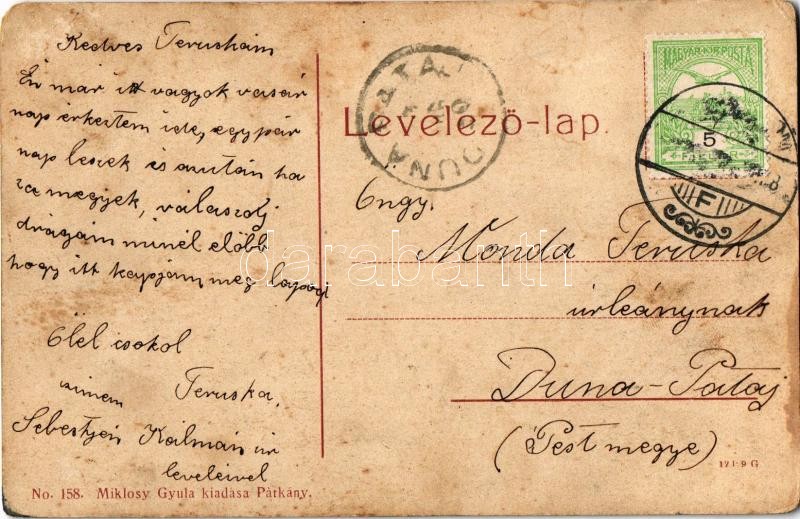 Kedves Teruskám
Én már itt vagyok vasár
nap érkeztem ide, egypár
nap leszek és azután ha
za megyek, válaszolj
drágám minél előbb
hogy itt kapjam meg lapod
Ölel csokol
Teruska,
czimem
Sebestyén Kálmán úr
leveleivel
No. 158. Miklosy Gyula kiadása Párkány.
MAGYAR KIR. POSTA
5
F
DUNA PATAJ
Levelező-lap.
Ngy.
Monda Teruska
úrleánynak
Duna-Pataj
(Pest megye)
121-9 G
darabanth